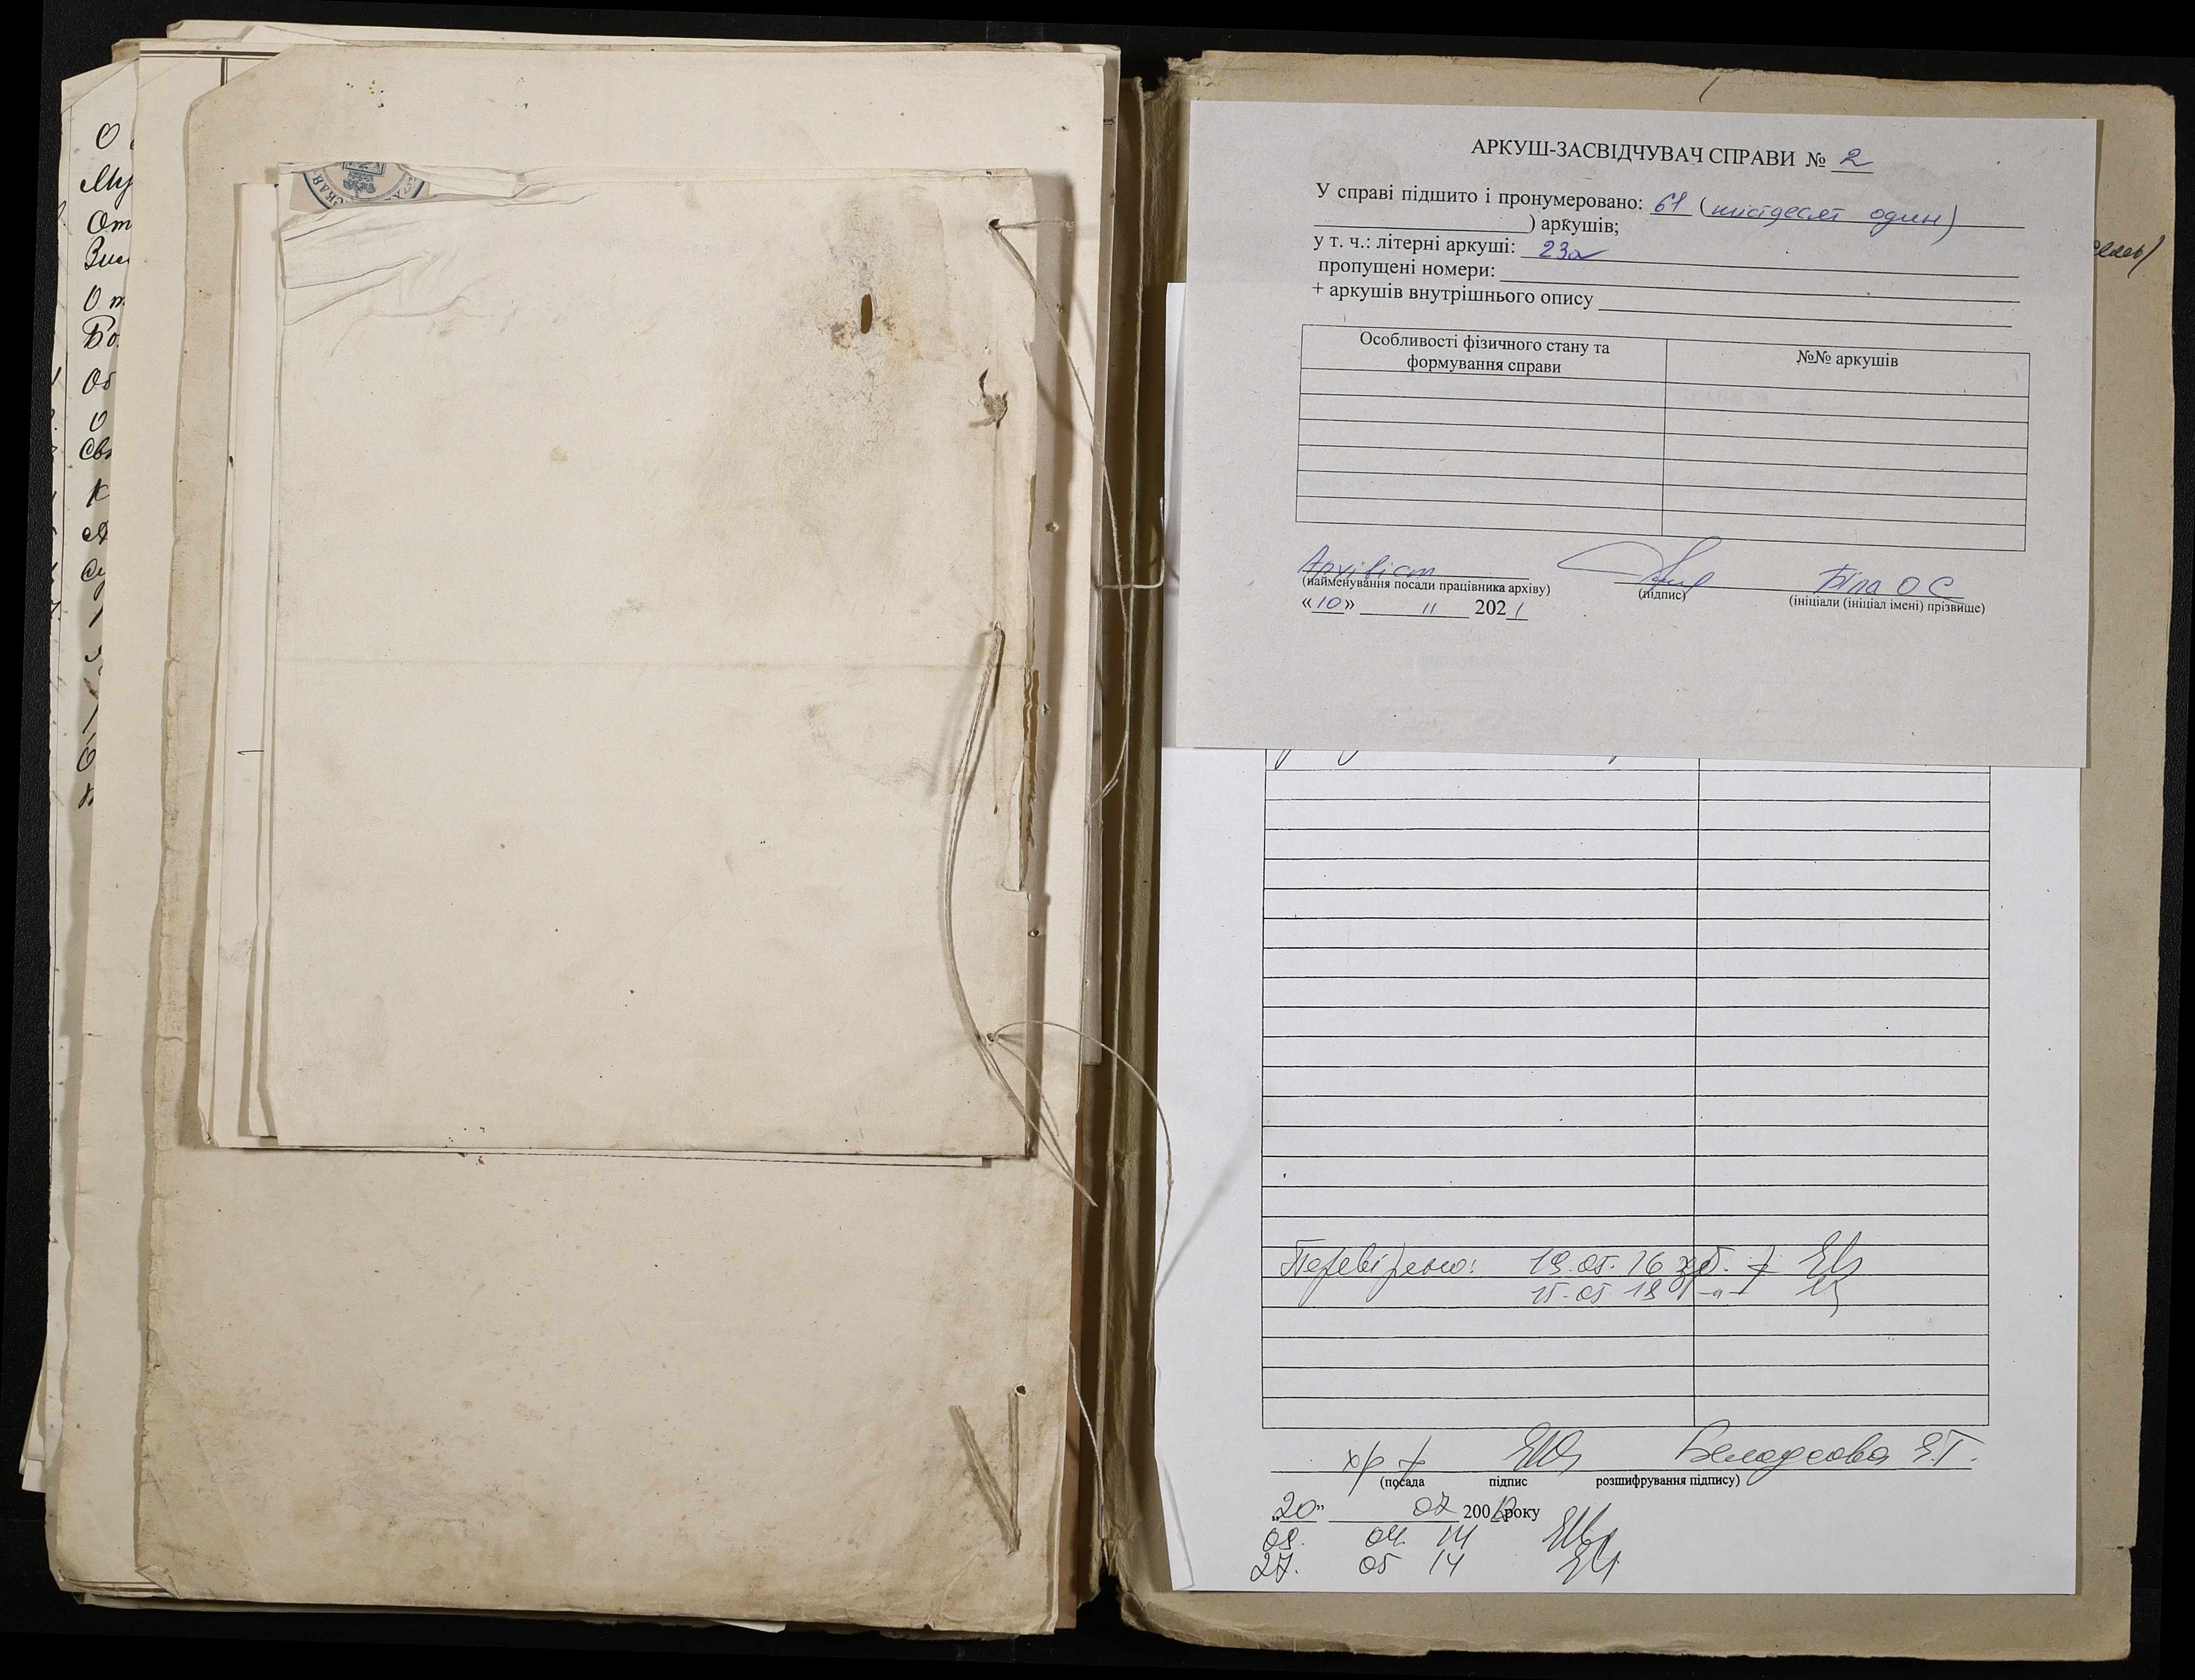 О
Му
От
Зи
От
Бо
Об
О
Свѣ
К
АРКУШ-ЗАСВІДЧУВАЧ СПРАВИ № 2
У справі підшито і пронумеровано: 61 (шістдесят один)
) аркушів;
у т. ч.: літерні аркуші: 23а
пропущені номери:
+ аркушів внутрішнього опису
Особливості фізичного стану та формування справи
№№ аркушів
Архівіст Біла О С
(найменування посади працівника архіву) (підпис) (ініціали (ініціал імені) прізвище)
«10» 11 2021
Перевірено: 19.05.16
15.05 18 -"-
(посада підпис розшифрування підпису)
„20” 07 200 року
09. 04. 14
27. 05 14